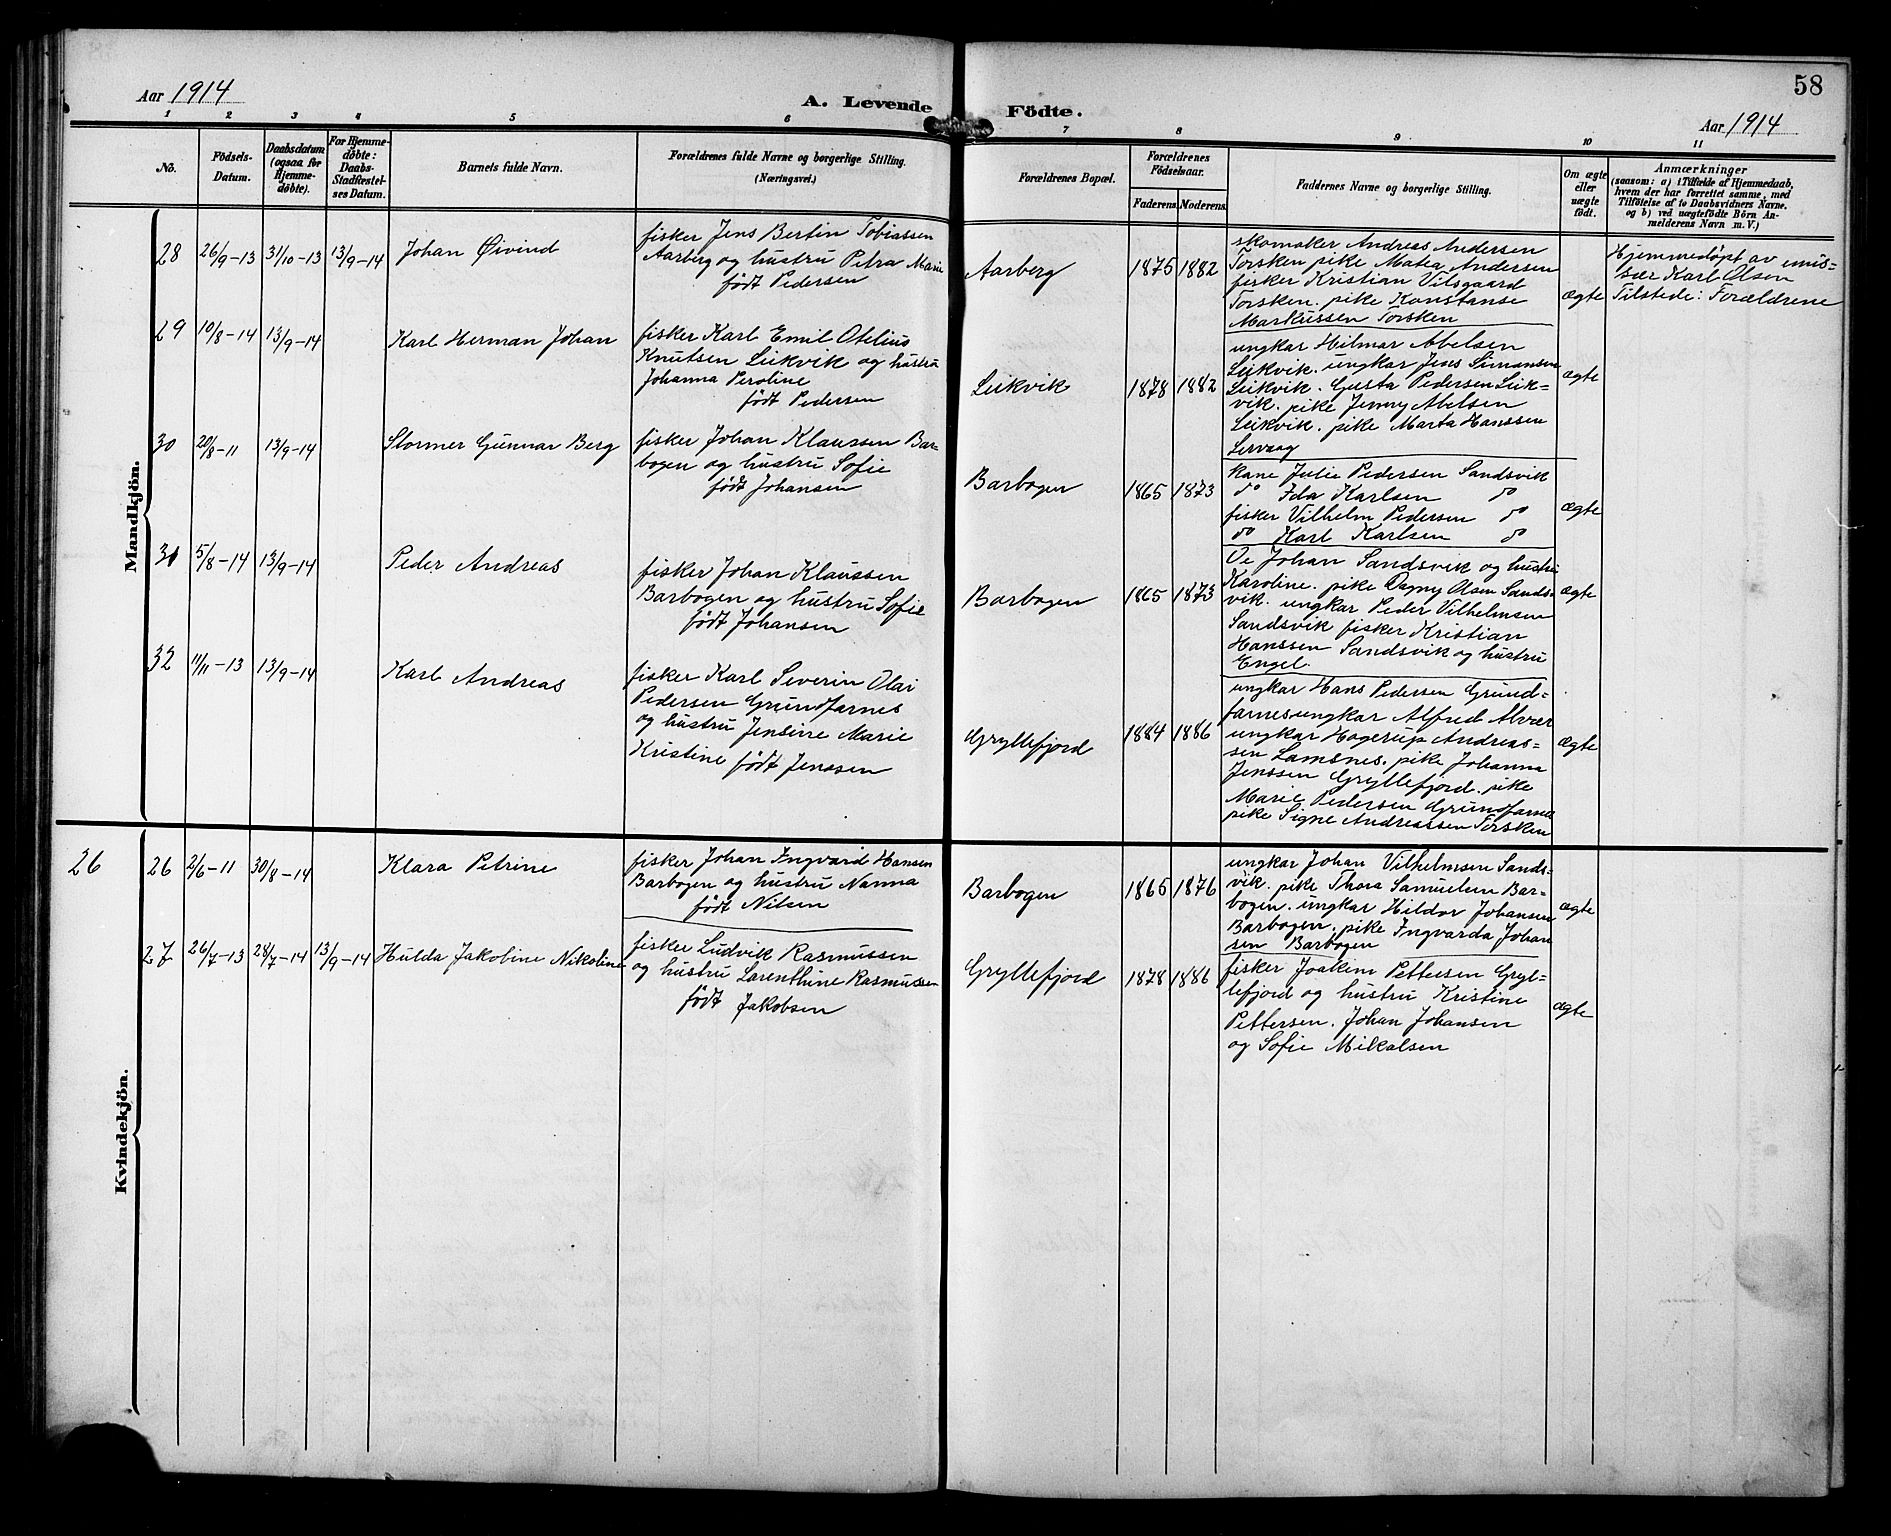 58
Aar 1914
A. Levende Födte.
Aar 1914
1 2 3 4 5 6 7 8 9 10 11
No.
Födsels-
Datum.
Daabsdatum
(ogsaa for
Hjemme-
döbte).
For Hjemme-
döbte:
Daabs-
Stadfæstel-
ses Datum.
Barnets fulde Navn.
Forældrenes fulde Navne og borgerlige Stilling.
(Næringsvei.)
Forældrenes Bopæl.
Forældrenes
Födselsaar.
Faderens. Moderens.
Faddernes Navne og borgerlige Stilling.
Om ægte
eller
uægte
födt.
Anmærkninger
(saasom: a) i Tilfælde af Hjemmedaab,
hvem der har forrettet samme, med
Tilföielse af to Daabsvidners Navne.
og b) ved uægtefödte Börn An-
melderens Navn m. V.)
Mandkjön.
28 26/9-13 31/10-13 13/9-14 Johan Øivind
fisker Jens Bertin Tobiassen
Aarberg og hustru Petra Marie
født Pedersen
Aarberg 1875 1882
skomaker Andreas Andersen
Torsken pike Matea Andersen
fisker Kristian Vilsgaard
Torsken. pike Konstanse
Markussen Torsken
ægte
Hjemmedøpt av emis-
sær Karl Olsen
Tilstede: Forældrene
29 10/8-14 13/9-14 Karl Herman Johan
fisker Karl Emil Otelius
Knutsen Leikvik og hustru
Johanna Peroline
født Pedersen
Leikvik 1878 1882
ungkar Hilmar Abelsen
Leikvik. ungkar Jens Simonsen
Leikvik. Gusta Pedersen Leik-
vik. pike Jenny Abelsen
Leikvik. pike Marta Hanssen
Lervaag
ægte
30 20/8-11 13/9-14 Stormer Gunnar Berg
fisker Johan Klaussen Bar-
bogen og hustru Sofie
født Johansen
Barbogen 1865 1873
kane Julie Pedersen Sandsvik
do Ida Karlsen do
fisker Vilhelm Pedersen do
do Karl Karlsen do
ægte
31 5/8-14 13/9-14 Peder Andreas
fisker Johan Klaussen
Barbogen og hustru Sofie
født Johansen
Barbogen 1865 1873
Oe Johan Sandsvik og hustru
Karoline. pike Dagny Olsen Sands-
vik. ungkar Peder Vilhelmsen
Sandsvik fisker Kristian
Hanssen Sandsvik og hustru
Engel.
ægte
32 11/11-13 13/9-14 Karl Andreas
fisker Karl Severin Olai
Pedersen Grundfarnes
og hustru Jensine Marie
Kristine født Jenssen
Gryllefjord 1884 1886
ungkar Hans Pedersen Grund-
farnes ungkar Alfred Alvær
ungkar Hagerup Andreas-
sen Lamsnes. pike Johanna
Jenssen Gryllefjord. pike
Marie Pedersen Grundfarnes
pike Signe Andreassen Torsken
ægte
Kvindekjön.
26 26 2/6-11 30/8-14 Klara Petrine
fisker Johan Ingvard Hansen
Barbogen og hustru Nanna
født Nilsen
Barbogen 1865 1876
ungkar Johan Vilhelmsen Sands-
vik. pike Thora Samuelsen Bar-
bogen. ungkar Hildor Johansen
Barbogen. pike Ingvarda Johan
sen Barbogen
ægte
27 26/7-13 28/7-14 13/9-14 Hulda Jakobine Nikoline
fisker Ludvik Rasmussen
og hustru Larenthine Rasmussen
født Jakobsen
Gryllefjord 1878 1886
fisker Joakim Pettersen Gryl-
lefjord og hustru Kristine
Pettersen. Johan Johansen
og Sofie Mikalsen
ægte